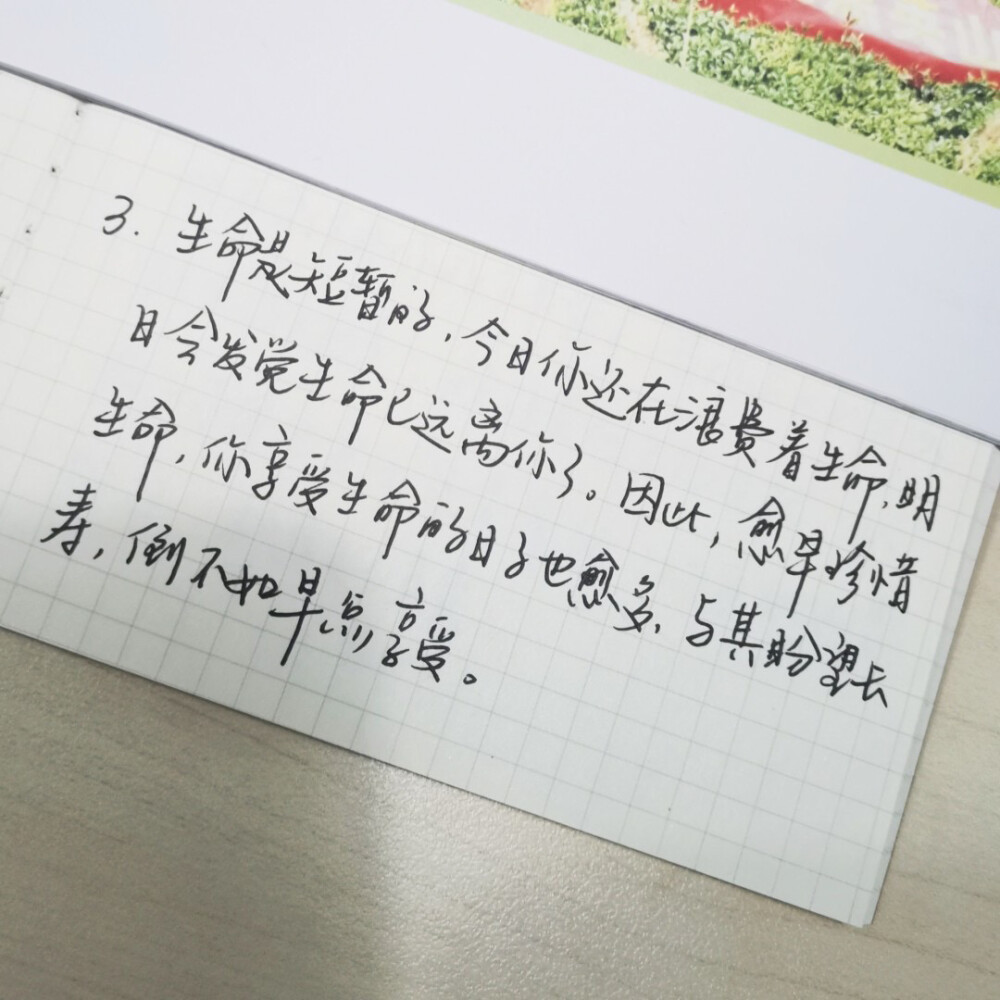 3. 生命是短暂的,今日你还在浪费着生命,明
日会发觉生命已远离你了。因此,愈早珍惜
生命,你享受生命的日子也愈多,与其盼望长
寿,倒不如早点享受。